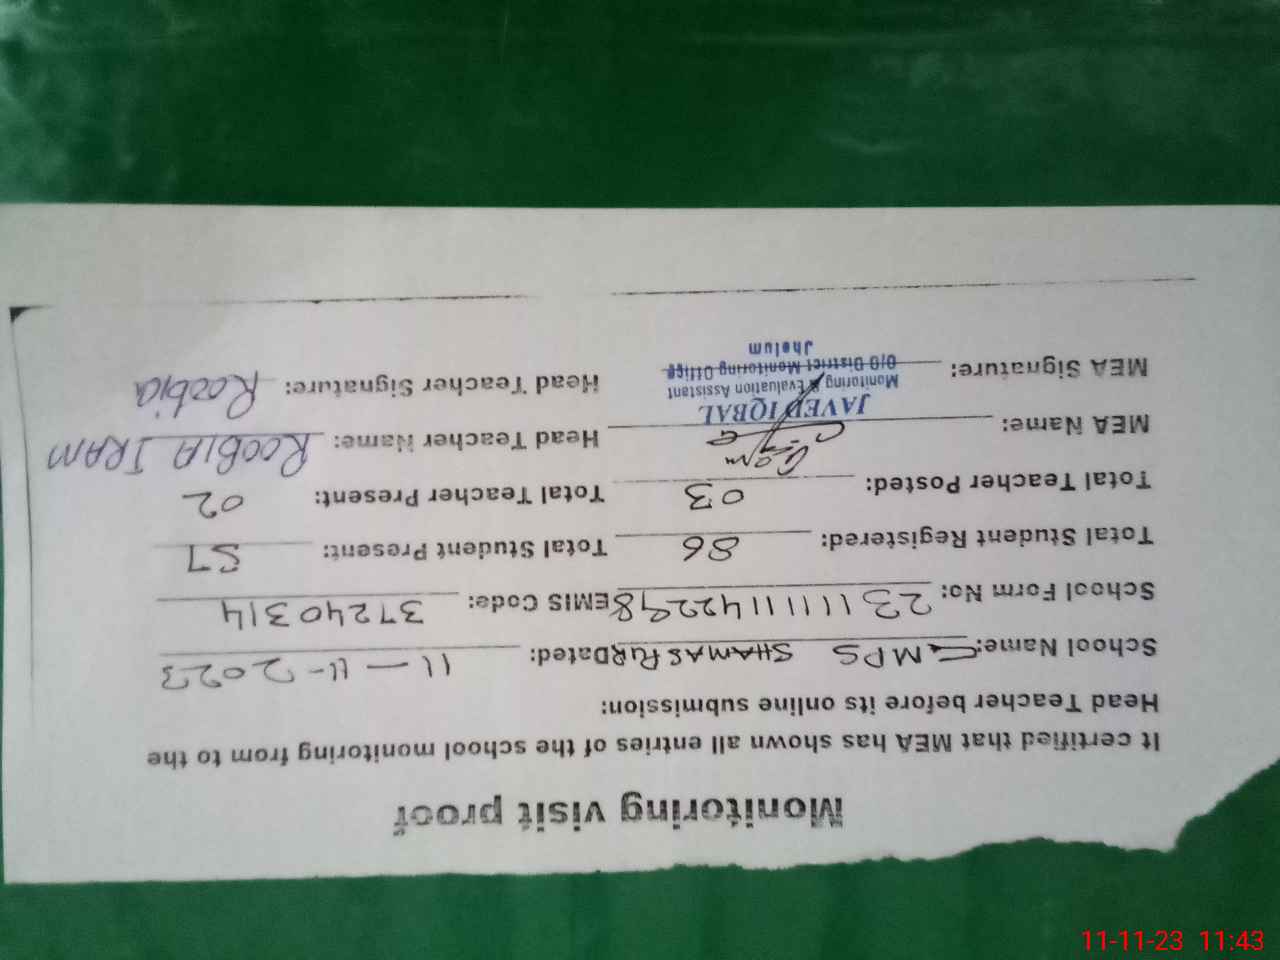 Monitoring visit proof
It certified that MEA has shown all entries of the school monitoring from to the
Head Teacher before its online submission:
School Name: GMPS SHAMAS PUR Dated: 11-11-2023
School Form No: 2311111142298 EMIS Code: 37240314
Total Student Registered: 86 Total Student Present: 57
Total Teacher Posted: 03 Total Teacher Present: 02
MEA Name: Head Teacher Name: ROOBIA IRAM
JAVED IQBAL
Monitoring & Evaluation Assistant
MEA Signature: O/O District Monitoring Office Head Teacher Signature: Roobia
Jhelum
11-11-23 11:43